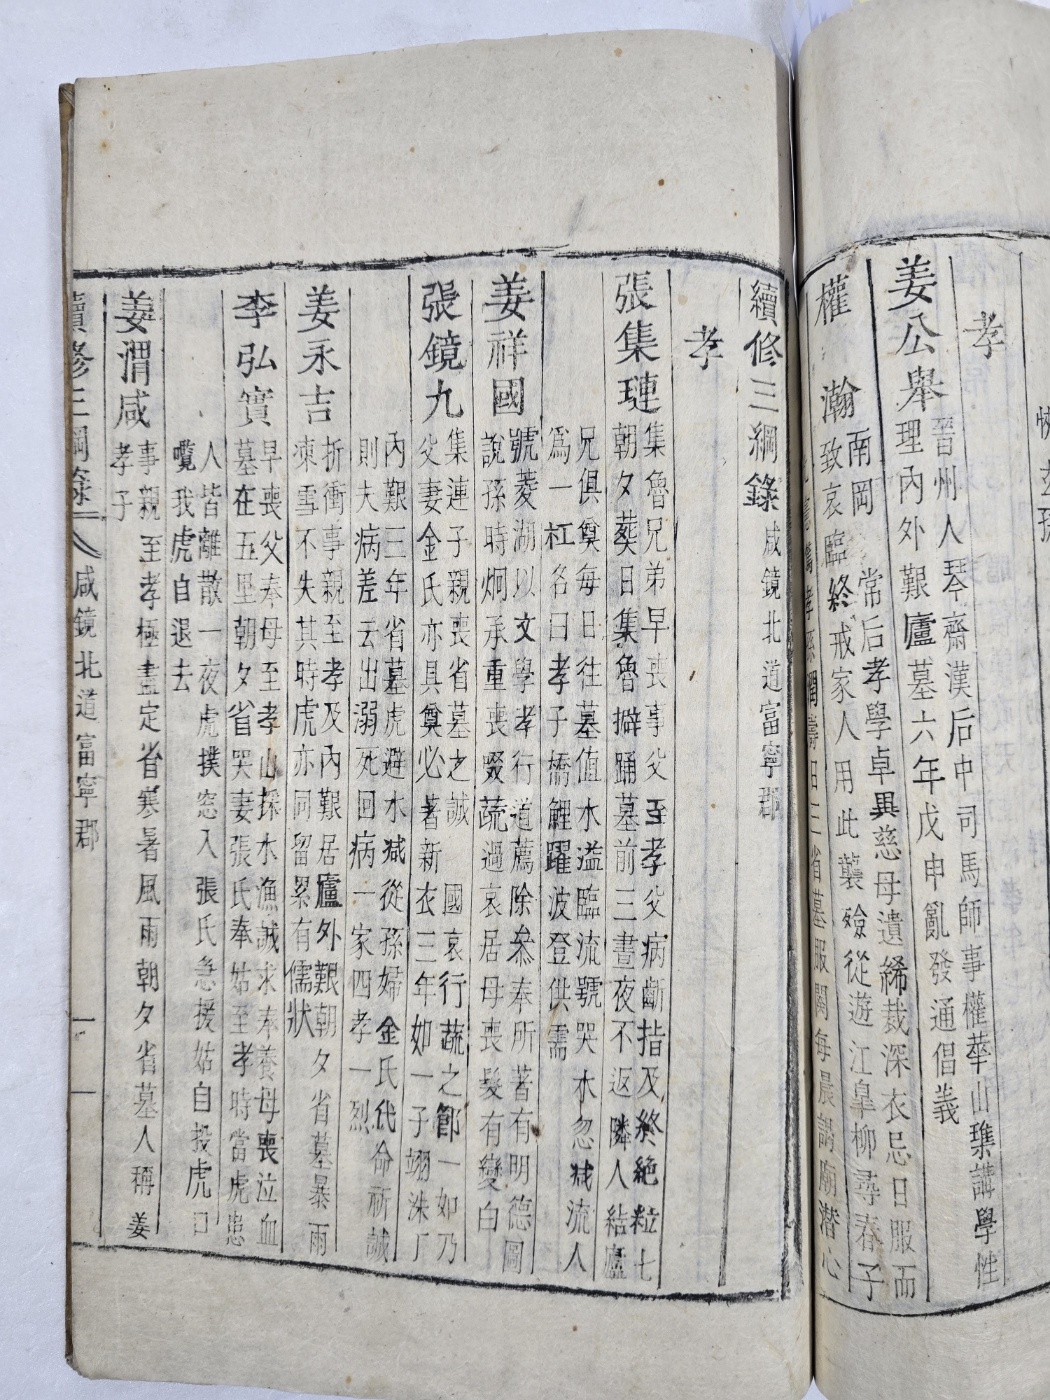 孝
姜公舉
晉州人琴齋漢后中司馬師事權華山瑧講學性
理內外艱廬墓六年戊申亂發通倡義
權瀚
南岡 常后孝學卓異慈母遺絺裁深衣忌日服而
致哀臨終戒家人用此襲殮從遊江皐柳尋春子
日三省墓服闋每晨謁廟潛心
續修三綱錄 咸鏡北道富寧郡
孝
張集璉
集魯兄弟早喪事父至孝父病斷指及終絶粒七
朝夕葬日集魯擗踊墓前三晝夜不返隣人結廬
兄俱奠每日往墓值水溢臨流號哭水忽減流人
爲一杠名曰孝子橋鯉躍波登供需
姜祥國
號菱湖以文學孝行道薦除叅奉所著有明德圖
說孫時炯承重喪啜蔬過哀居母喪髮有變白
張鏡九
集連子親喪省墓之誠 國哀行蔬之節一如乃
父妻金氏亦具奠必著新衣三年如一子翊洙丁
內艱三年省墓虎避水減從孫婦金氏代命祈誠
則夫病差云出溺死回病一家四孝一烈
姜永吉
折衝事親至孝及內艱居廬外艱朝夕省墓暴雨
凍雪不失其時虎亦同留累有儒狀
李弘實
早喪父奉母至孝山採水漁誠求奉養母喪泣血
墓在五里朝夕省哭妻張氏奉姑至孝時當虎患
人皆離散一夜虎撲窓入張氏急援姑自投虎口
嚂我虎自退去
姜渭咸
事親至孝極盡定省寒暑風雨朝夕省墓人稱姜
孝子
續修三綱錄 咸鏡北道富寧郡 一